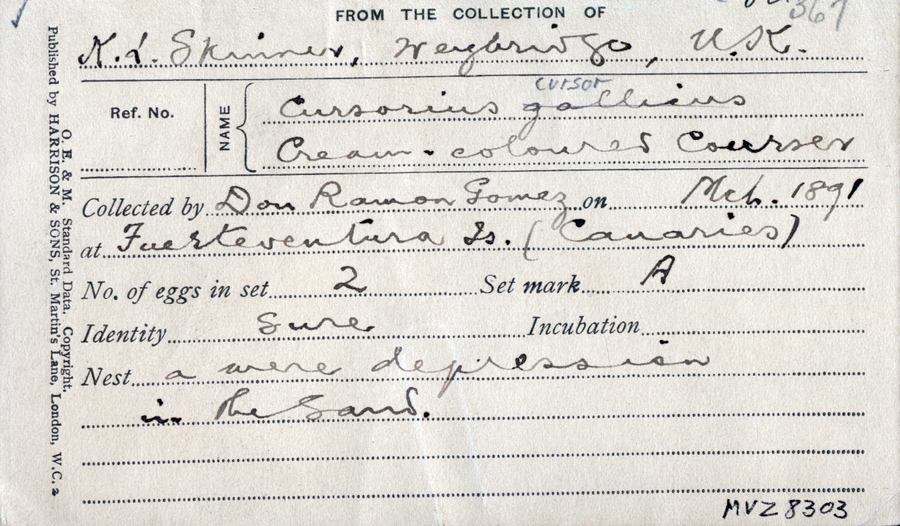 367
FROM THE COLLECTION OF
K. L. Skinner, Weybridge, U.K.
cursor
Ref. No.
NAME
Cursorius gallicus
Cream-coloured Courser
Collected by Don Ramon Gomez on Mch. 1891
at Fuerteventura Is. (Canaries)
No. of eggs in set 2 Set mark A
Identity Sure Incubation
Nest a mere depression
in the Sand.
MVZ 8303
O. E. & M. Standard Data. Copyright.
Published by HARRISON & SONS, St. Martin's Lane, London, W.C. 2